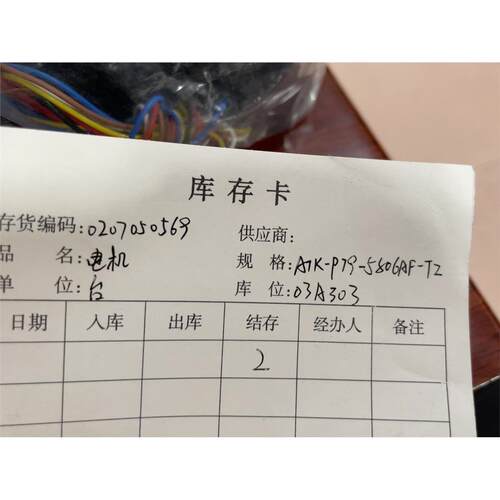 库存卡
存货编码:0207050569 供应商:
品 名:电机 规 格:A1K-P79-5806AF-T2
单 位:台 库 位:03A303
日期 入库 出库 结存 经办人 备注
2